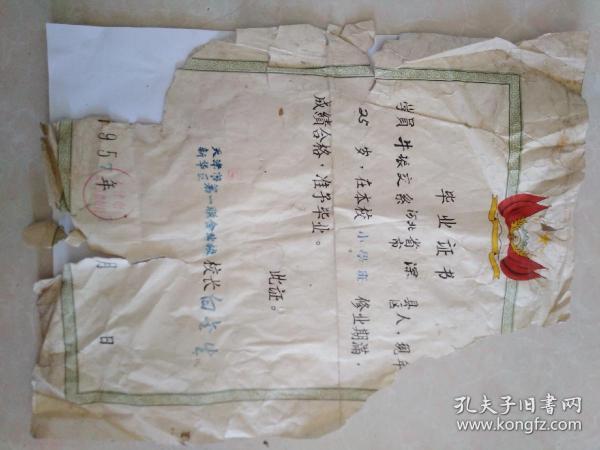 毕业证书
学员牛振文系河北省深县人，现年
市 区
25岁，在本校小学班修业期满，
成绩合格，准予毕业。
此证。
天津市
新华区第一联合业校 校长
1957年 月 日
孔夫子旧书网
www.kongfz.com